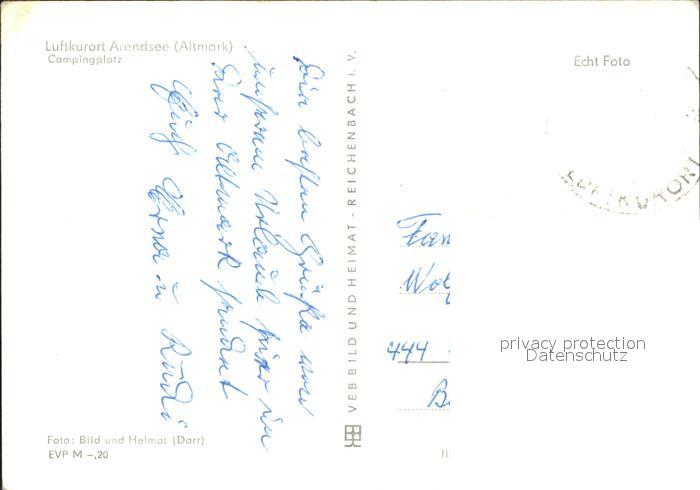 Luftkurort Arendsee (Altmark)
Campingplatz
Echt Foto
Die besten Grüße von
unserem Urlaub hier in
der Altmark sendet
Euch Erna u. Rudi
VEB BILD UND HEIMAT - REICHENBACH I. V.
LUFTKURORT
Fam
444
privacy protection
Datenschutz
Foto: Bild und Heimat (Darr)
EVP M –,20